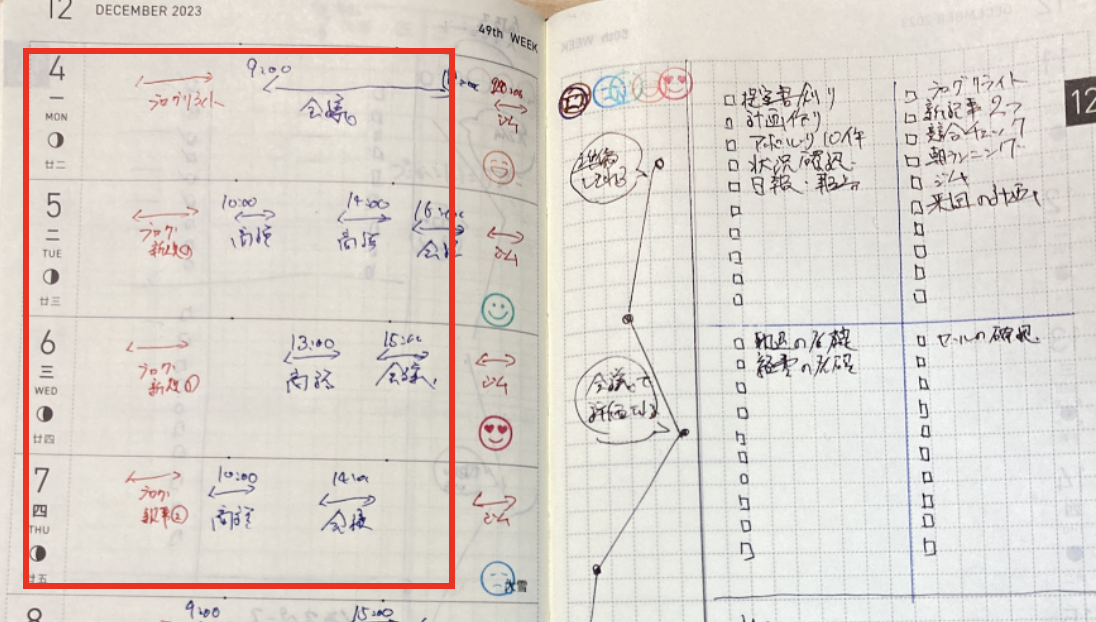 12 DECEMBER 2023
49th WEEK
4
一
MON
廿二
9:00
会議
ブログリライト
ジム
5
二
TUE
廿三
10:00
14:00
16:00
ブログ
新規①
商談
商談
会議
ジム
6
三
WED
廿四
13:00
15:00
ブログ
新規①
商談
会議
ジム
7
四
THU
廿五
10:00
14:00
ブログ
記事②
商談
会議
ジム
大雪
8
9:00
15:00
DECEMBER 2023
50th WEEK
12
提案書作り
計画作り
アポ取り10件
状況確認
日報
ブログリライト
新記事2つ
競合チェック
朝ランニング
ジム
来週の計画
軌道の確認
経費の確認
セールの確認
準備
会議で
評価される